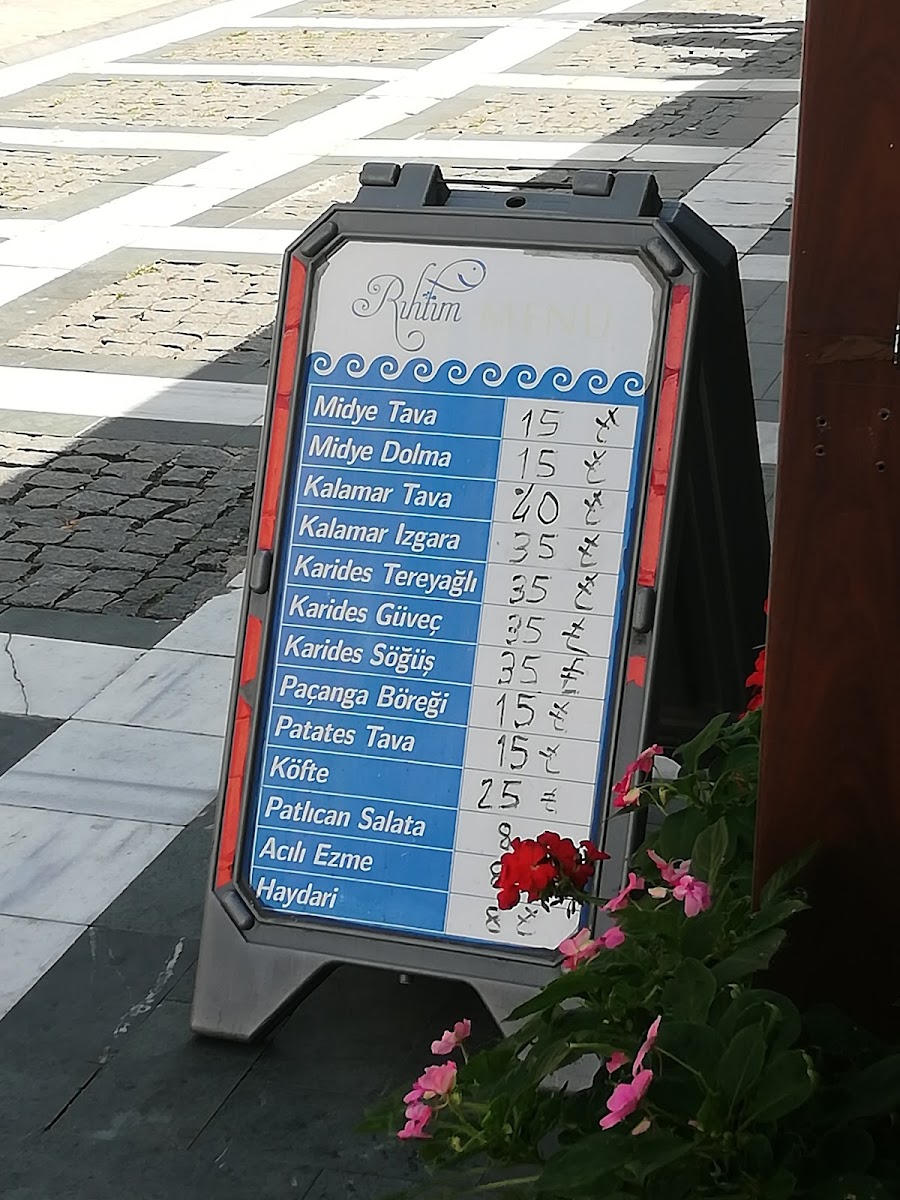 Rıhtım MENÜ
Midye Tava 15 ₺
Midye Dolma 15 ₺
Kalamar Tava 40 ₺
Kalamar Izgara 35 ₺
Karides Tereyağlı 35 ₺
Karides Güveç 35 ₺
Karides Söğüş 35 ₺
Paçanga Böreği 15 ₺
Patates Tava 15 ₺
Köfte 25 ₺
Patlıcan Salata 8
Acılı Ezme
Haydari 8 ₺